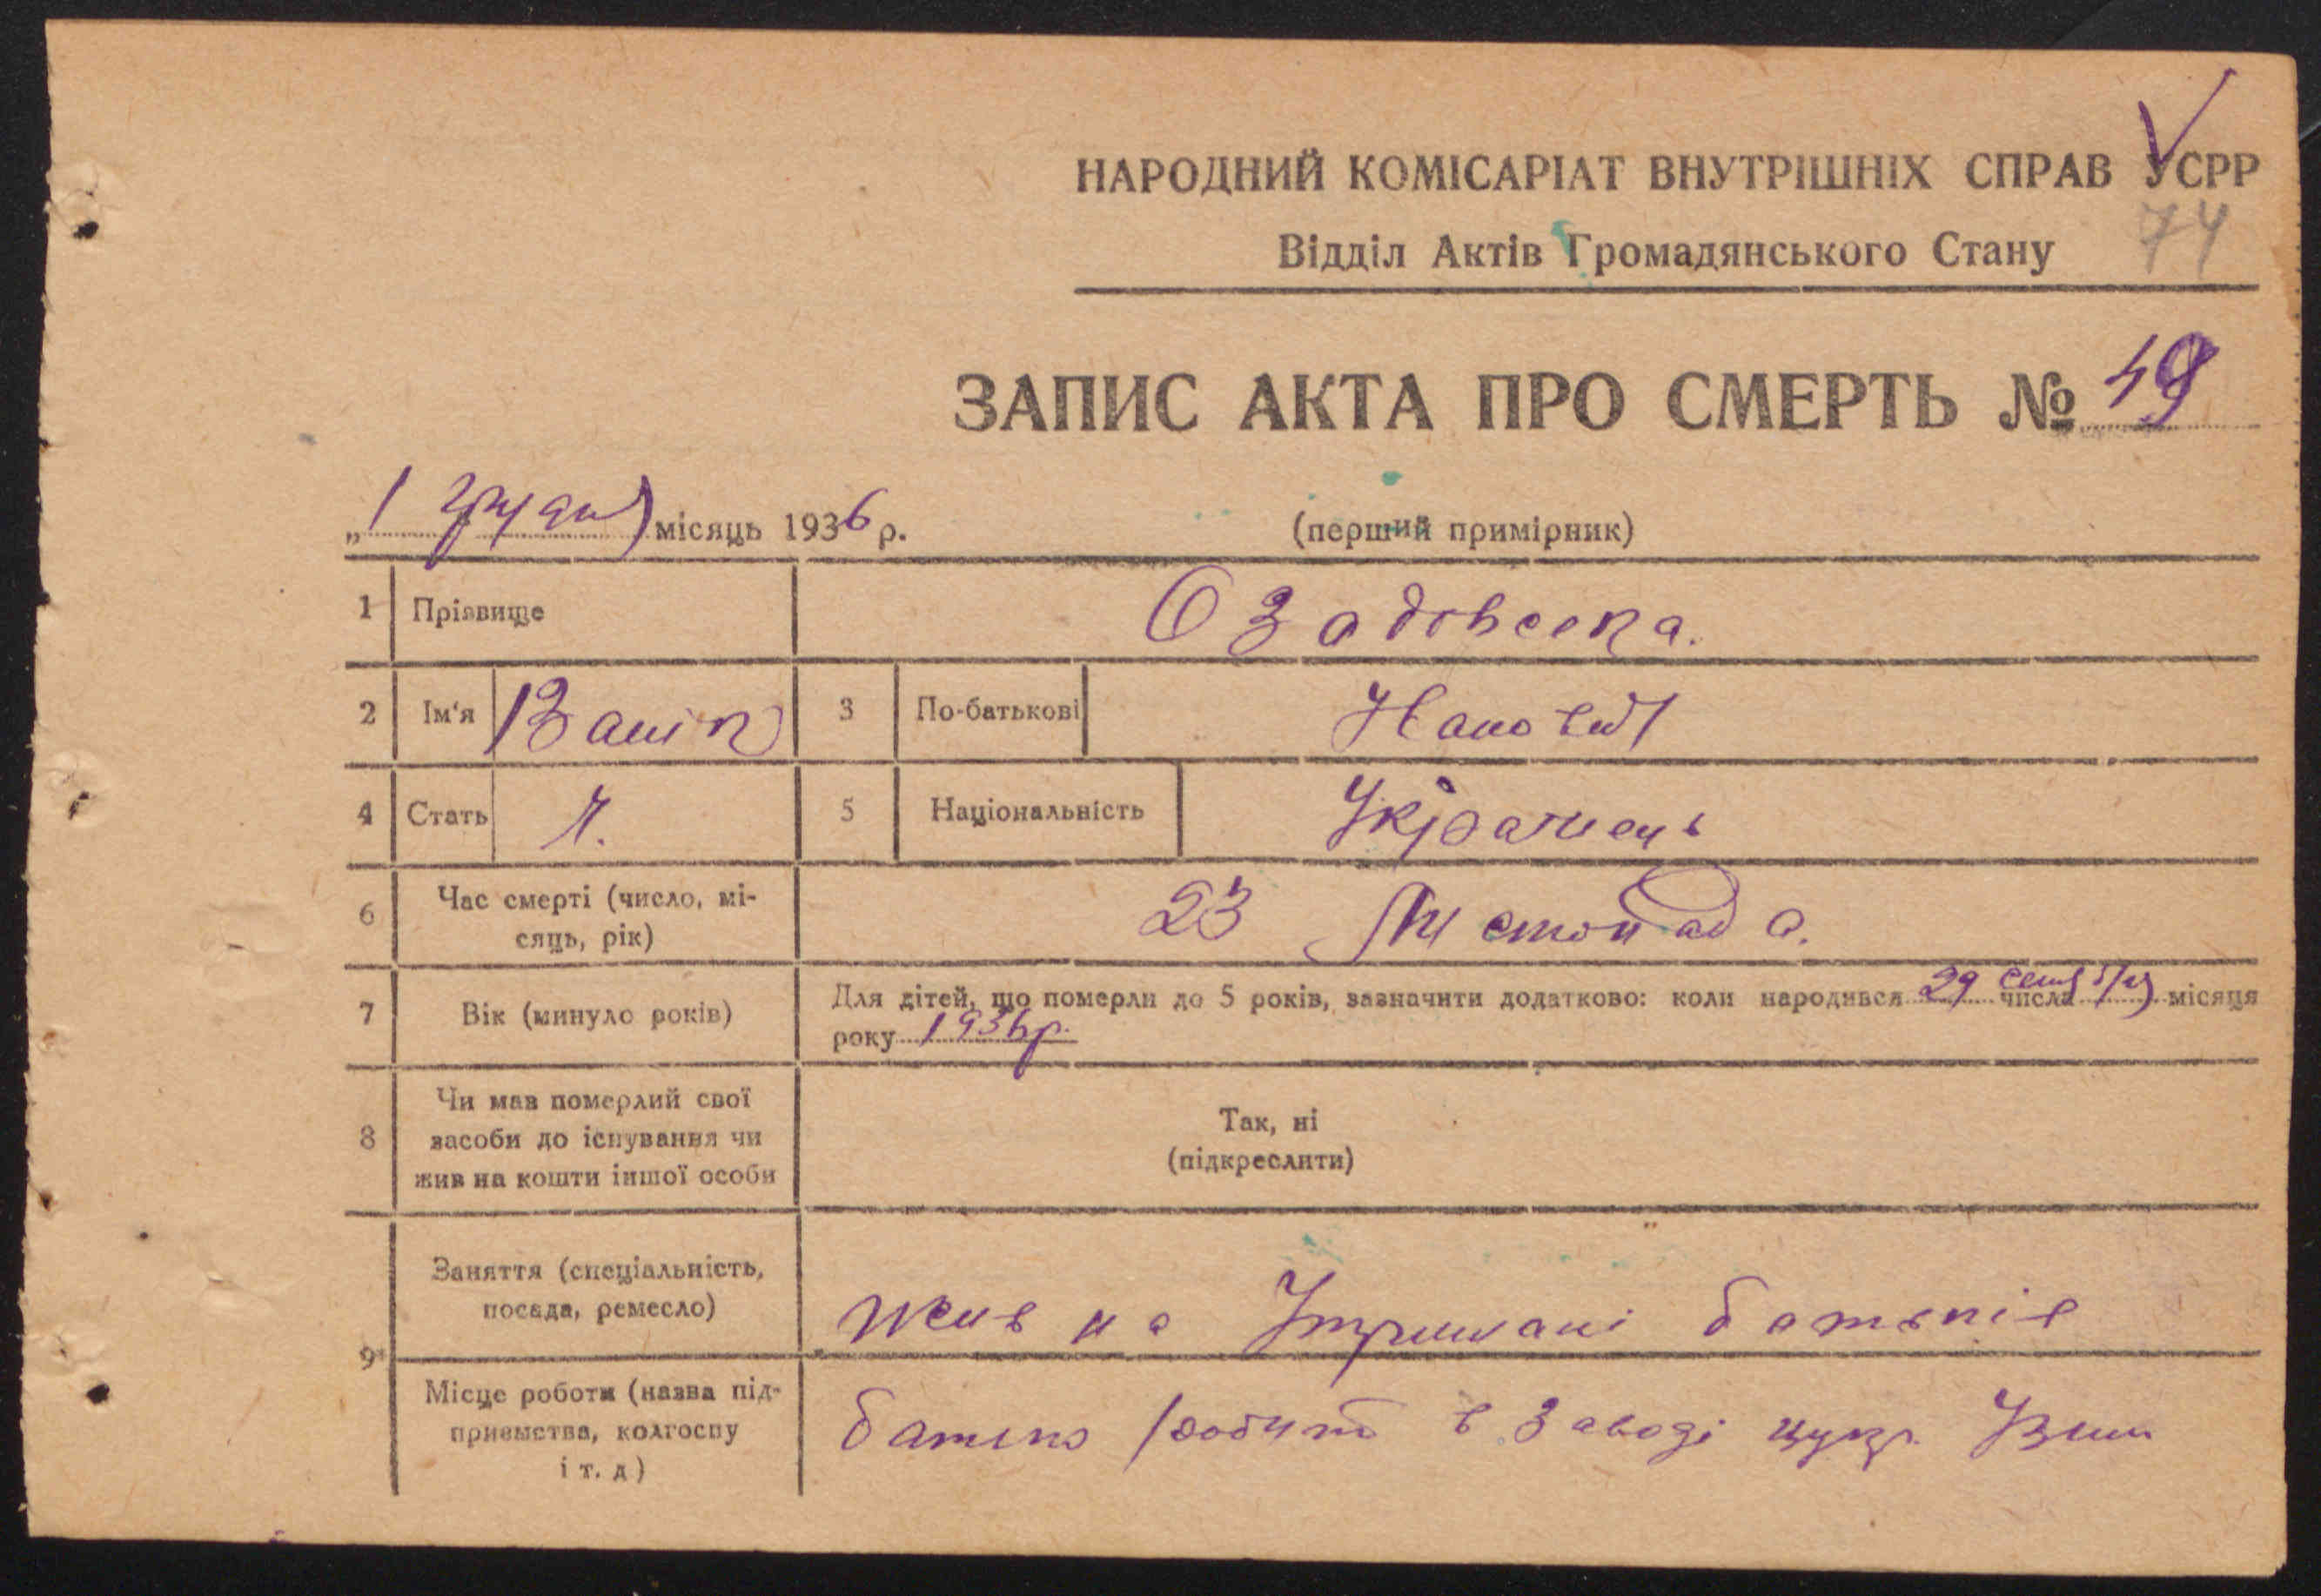 НАРОДНИЙ КОМІСАРІАТ ВНУТРІШНІХ СПРАВ УСРР
74
Відділ Актів Громадянського Стану
ЗАПИС АКТА ПРО СМЕРТЬ № 49
„1 грудня місяць 1936 р. (перший примірник)
1 Прізвище Озадовська.
2 Ім'я Ванік 3 По-батькові
4 Стать Ч. 5 Національність Українець
6 Час смерті (число, мі-
сяць, рік) 23 Листопада.
7 Вік (минуло років) Для дітей, що померли до 5 років, зазначити додатково: коли народився 29 числа місяця
року 1936р.
8 Чи мав померлий свої
засоби до існування чи
жив на кошти іншої особи
Так, ні
(підкреслити)
9 Заняття (спеціальність,
посада, ремесло) Жив на Утримані батьків
Місце роботи (назва під-
приємства, колгоспу
і т. д) батько робить в заводі цукр.